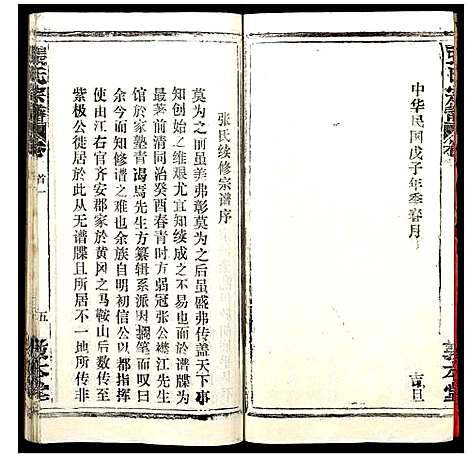 張氏宗譜
中华民国戊子年季春月
吉旦
張氏宗譜
卷首一
五
张氏续修宗谱序
莫为之前虽美弗彰莫为之后虽盛弗传盖天下事
最创始之维艰尤宜知续成之不易也而于谱牒为
最菶前清同治癸酉春青方弱冠张公懋江先生
馆於家塾青谒焉先生方纂辑系派因搁笔而叹曰
余今而知修谱之难也余族自明初信公以都指挥
使由江右官齐安郡家於黄冈之马鞍山后数传至
紫极公徙居於此从无谱牒且所居不一地所传非